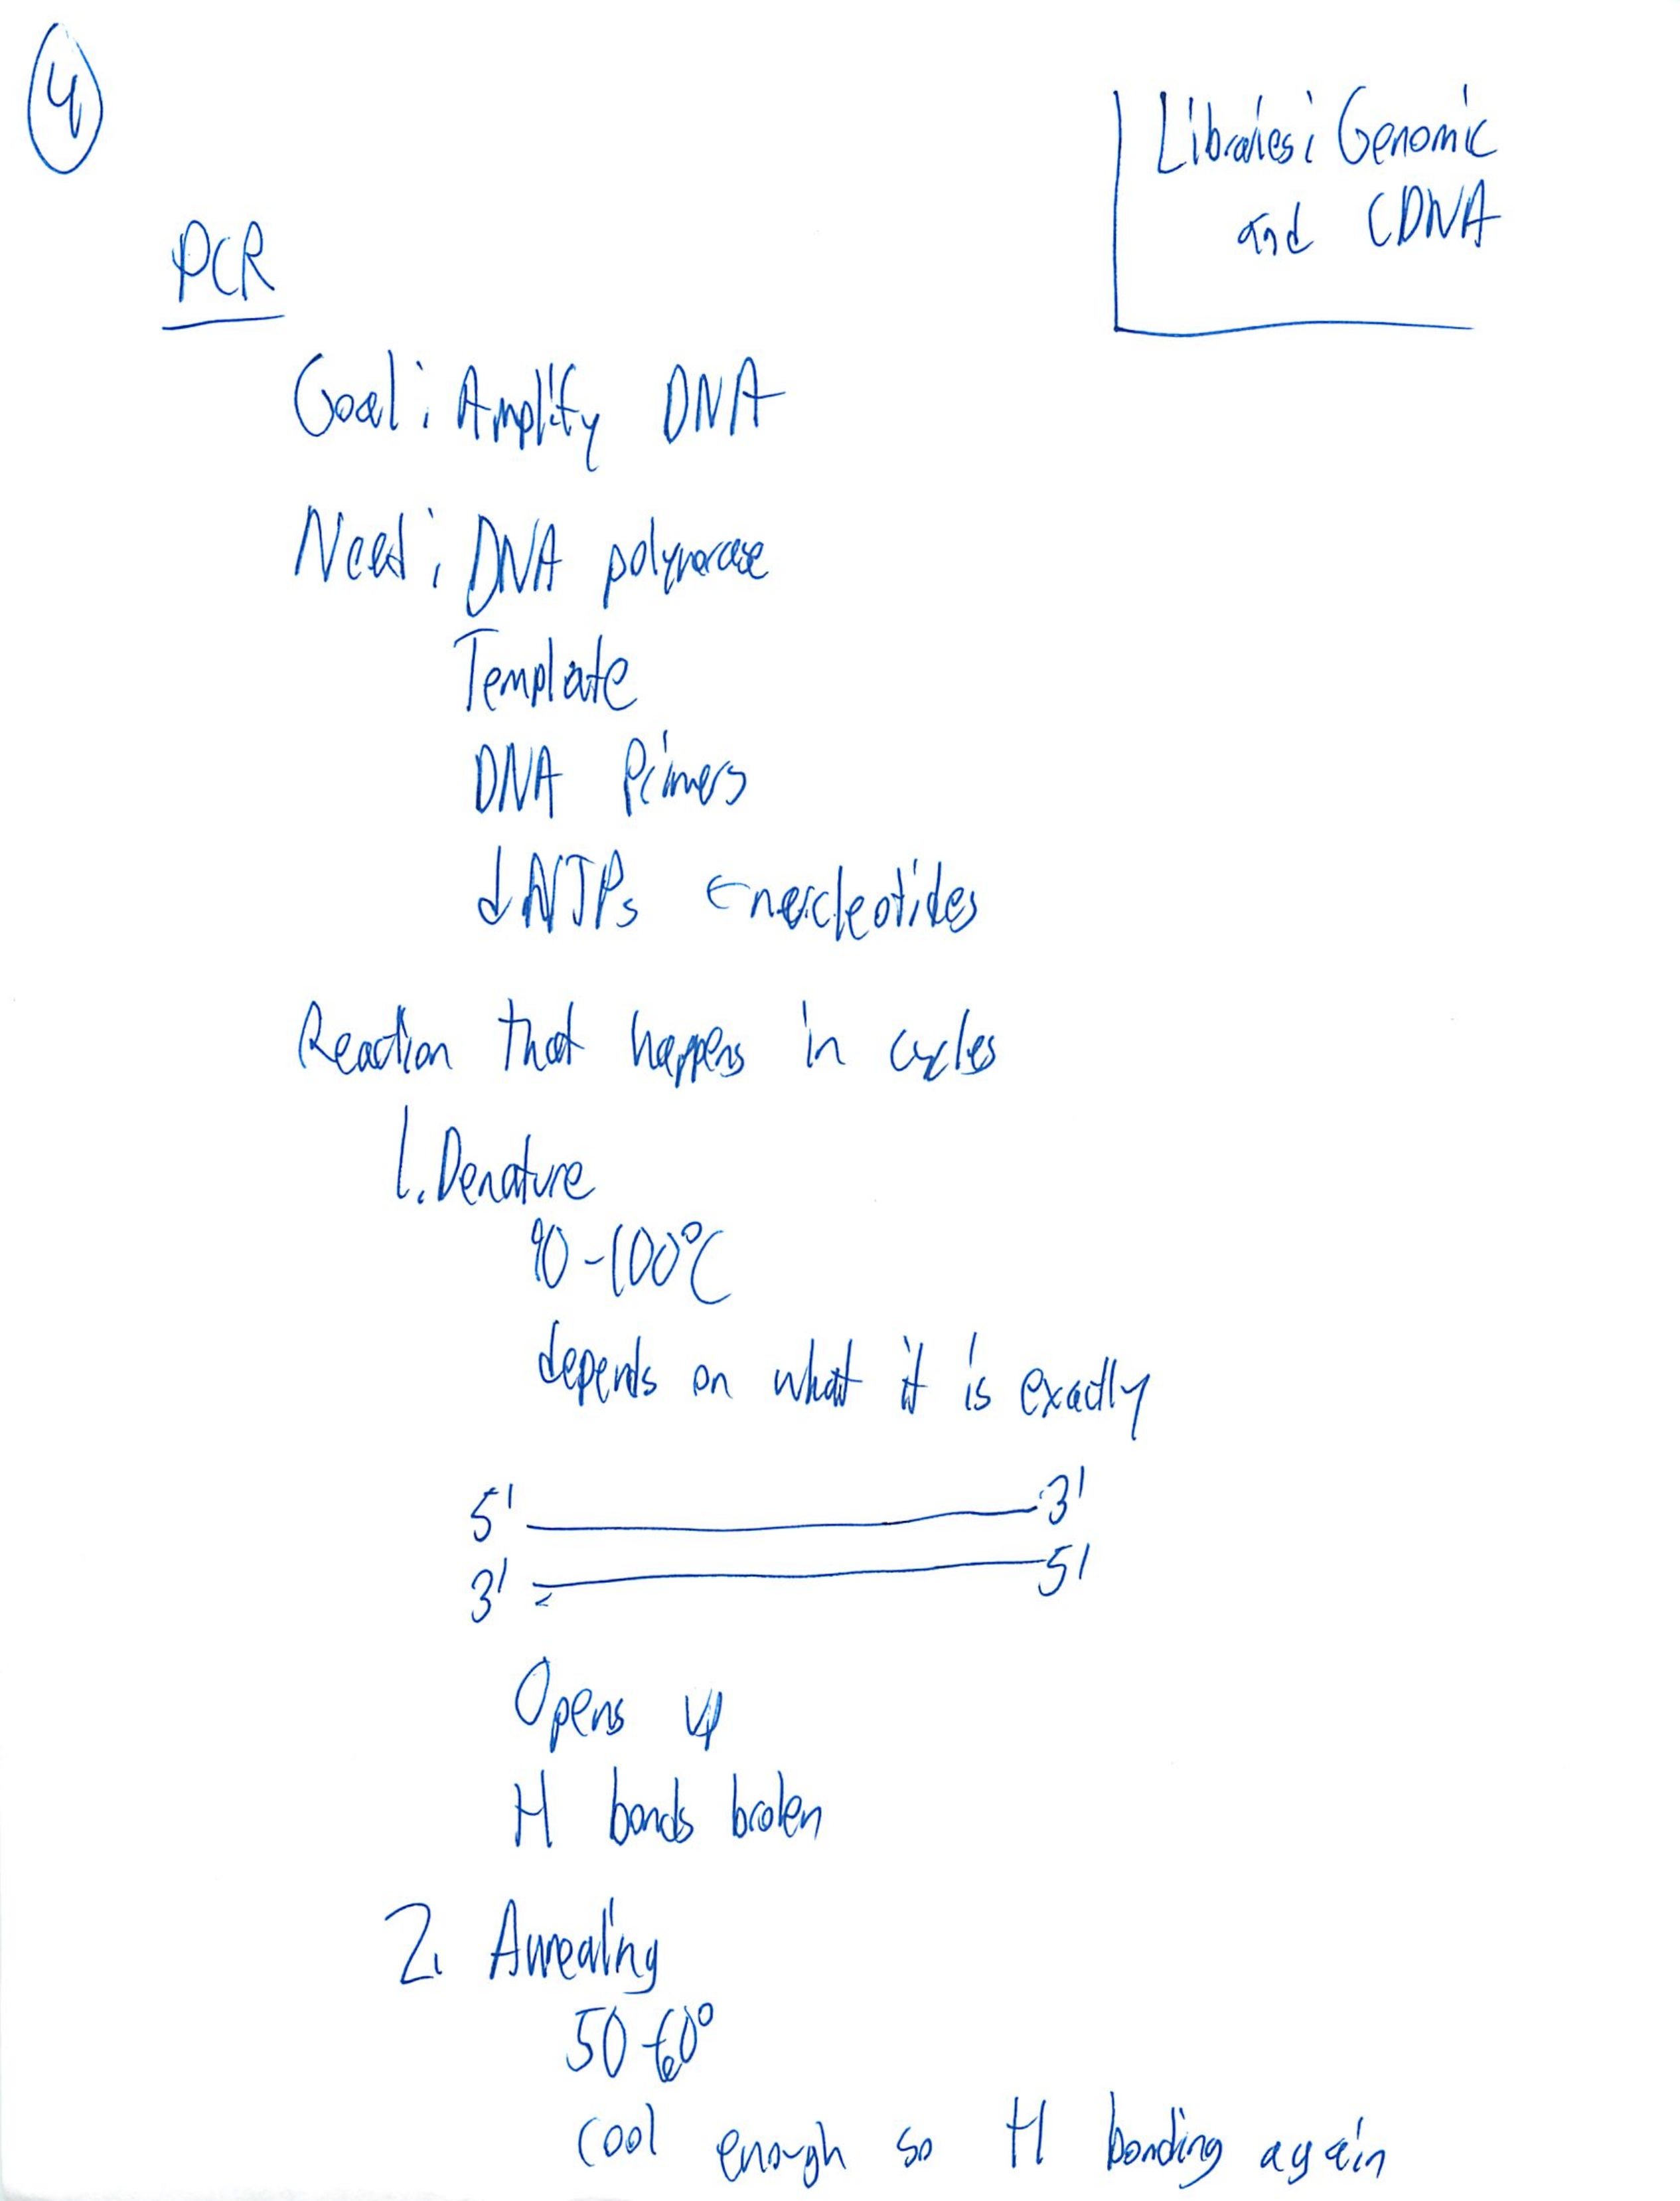 4
Libraries: Genomic
and cDNA
PCR
Goal: Amplify DNA
Need: DNA polymerase
Template
DNA Primers
dNTPs ← nucleotides
Reaction that happens in cycles
1. Denature
90-100°C
depends on what it is exactly
5' 3'
3' 5'
Opens up
H bonds broken
2. Annealing
50-60°
cool enough so H bonding again